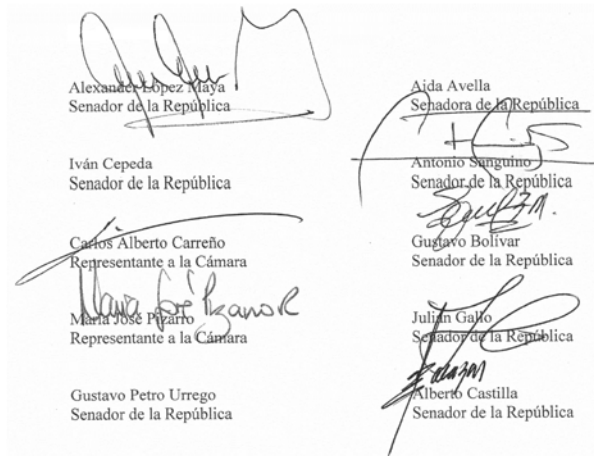 Alexander López Maya
Senador de la República
Iván Cepeda
Senador de la República
Carlos Alberto Carreño
Representante a la Cámara
Maria José Pizarro R
María José Pizarro
Representante a la Cámara
Gustavo Petro Urrego
Senador de la República
Aida Avella
Senadora de la República
Antonio Sanguino
Senador de la República
Gustavo Bolívar
Senador de la República
Julián Gallo
Senador de la República
Alberto Castilla
Senador de la República